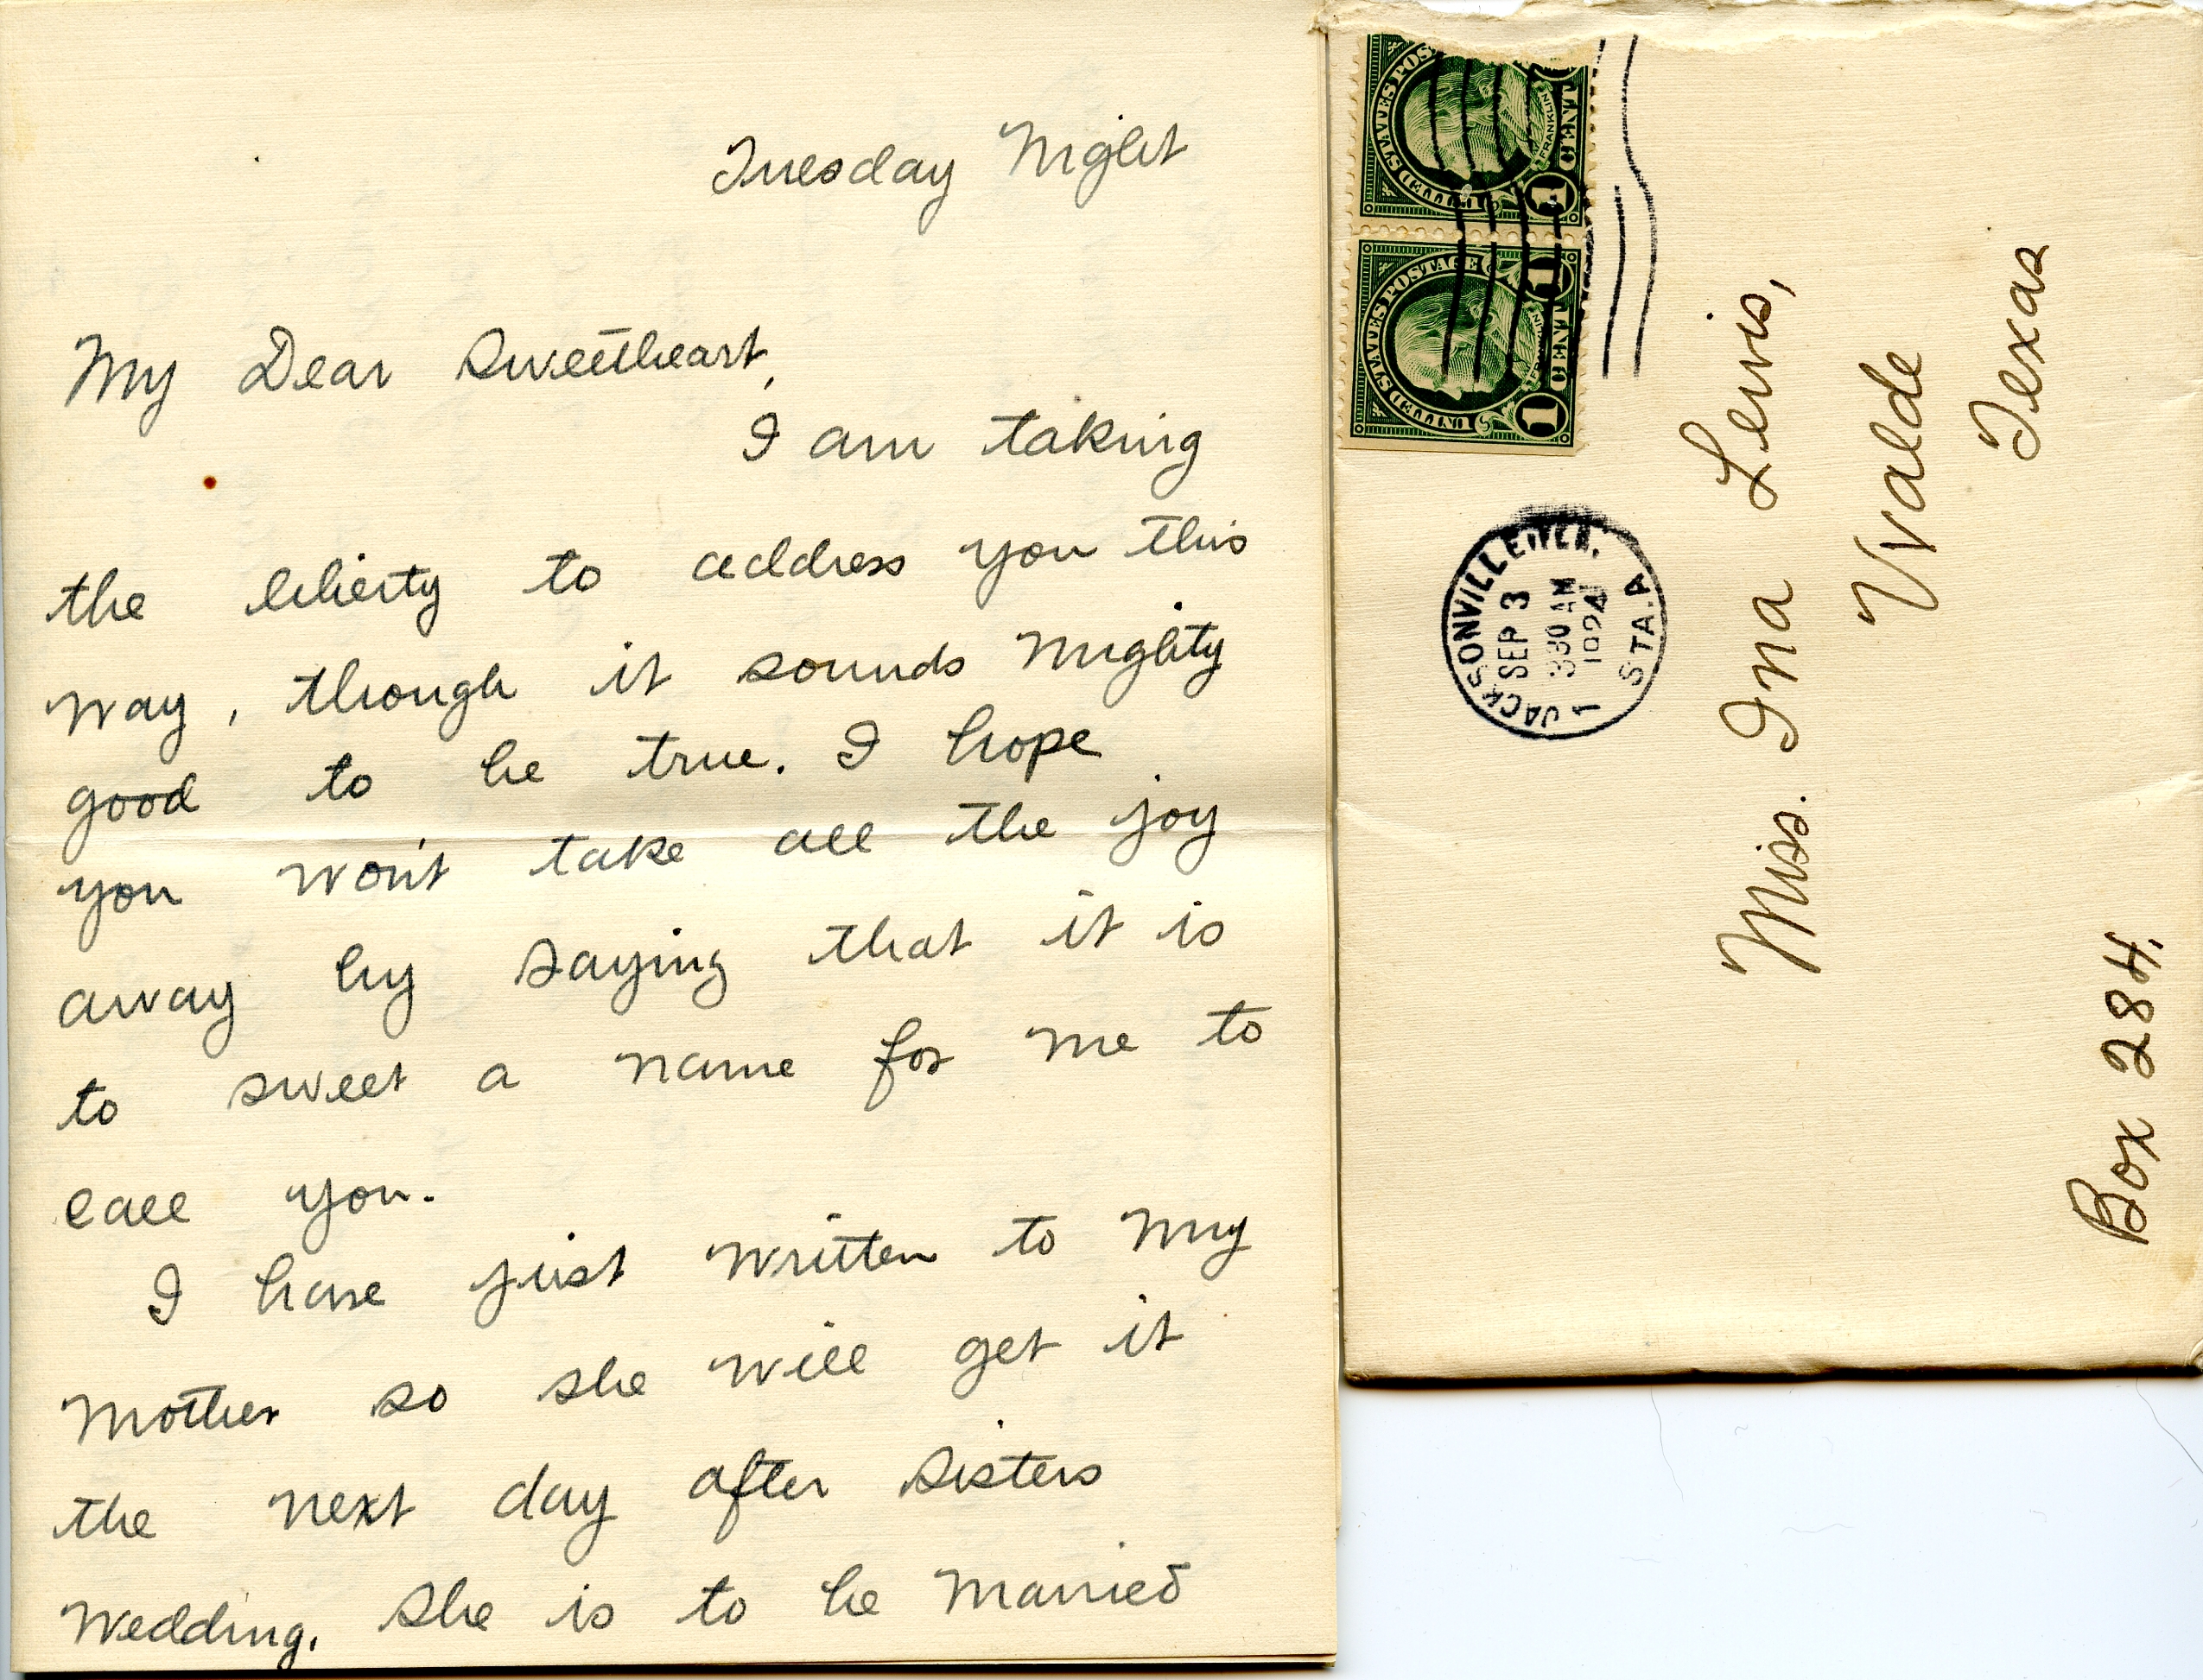 Tuesday Night
My Dear Sweetheart,
I am taking
the liberty to address you this
way, though it sounds mighty
good to be true. I hope
you won't take all the joy
away by saying that it is
to sweet a name for me to
call you.
I have just written to my
Mother so she will get it
the next day after sisters
Wedding. She is to be married
UNITED STATES POSTAGE
FRANKLIN
1 CENT 1
UNITED STATES POSTAGE
1 CENT 1
JACKSONVILLE, FLA.
SEP 3
330 AM
1924
STA. A
1
Miss. Ina Lewis,
Uvalde
Texas
Box 284,